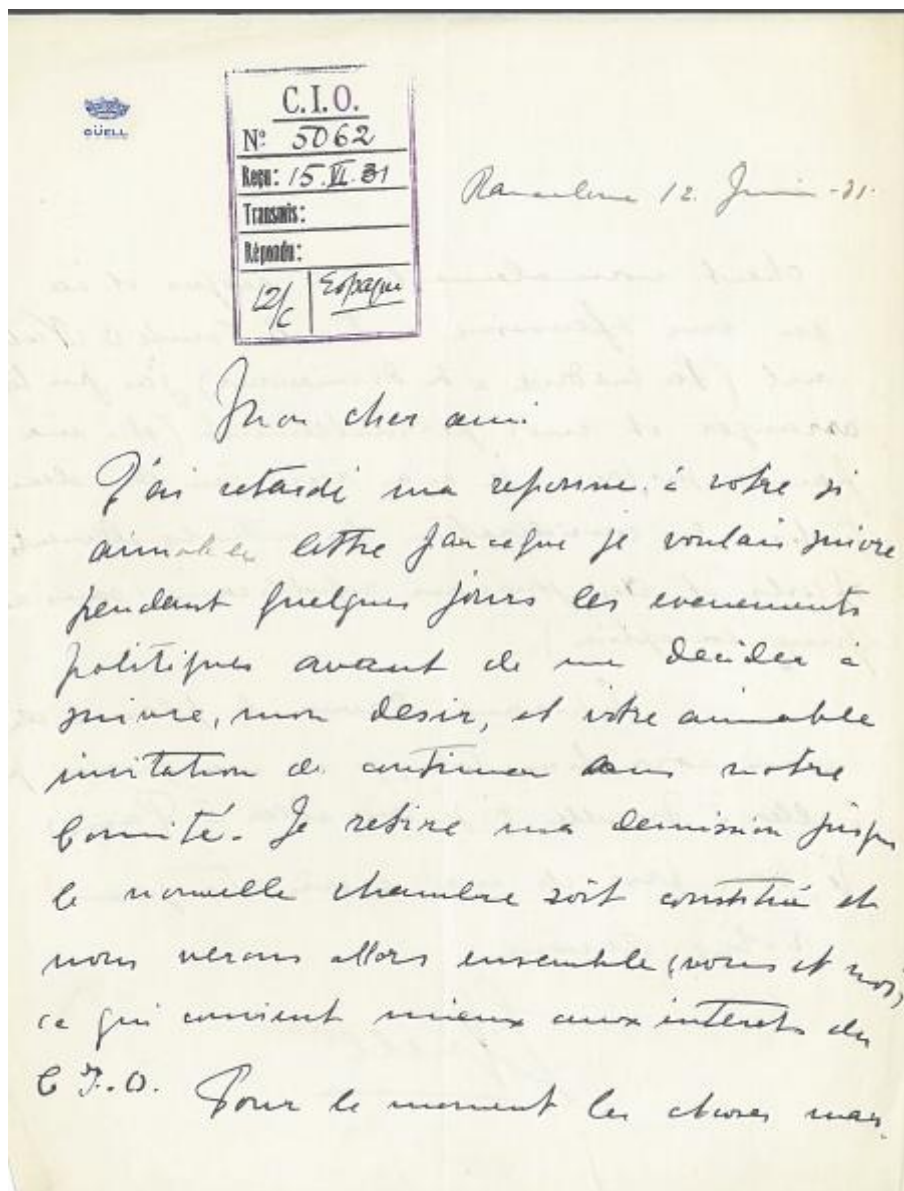 GÜELL
C.I.O.
Nº 5062
Reçu: 15.VI.31
Transmis:
Répondu:
12/c Espagne
Barcelone 12. Juin -31-
Mon cher ami
J'ai retardé ma reponse, à votre si
aimable lettre parceque je voulais suivre
pendant quelques jours les evenements
politiques avant de me decider à
suivre, mon desir, et votre aimable
invitation de continuer dans notre
Comité. Je retire ma demission jusque
le nouvelle chambre soit constituée et
nous verons allors ensemble (vous et moi)
ce qui convient mieux aux interets du
C I.O. Pour le moment les choses mar-